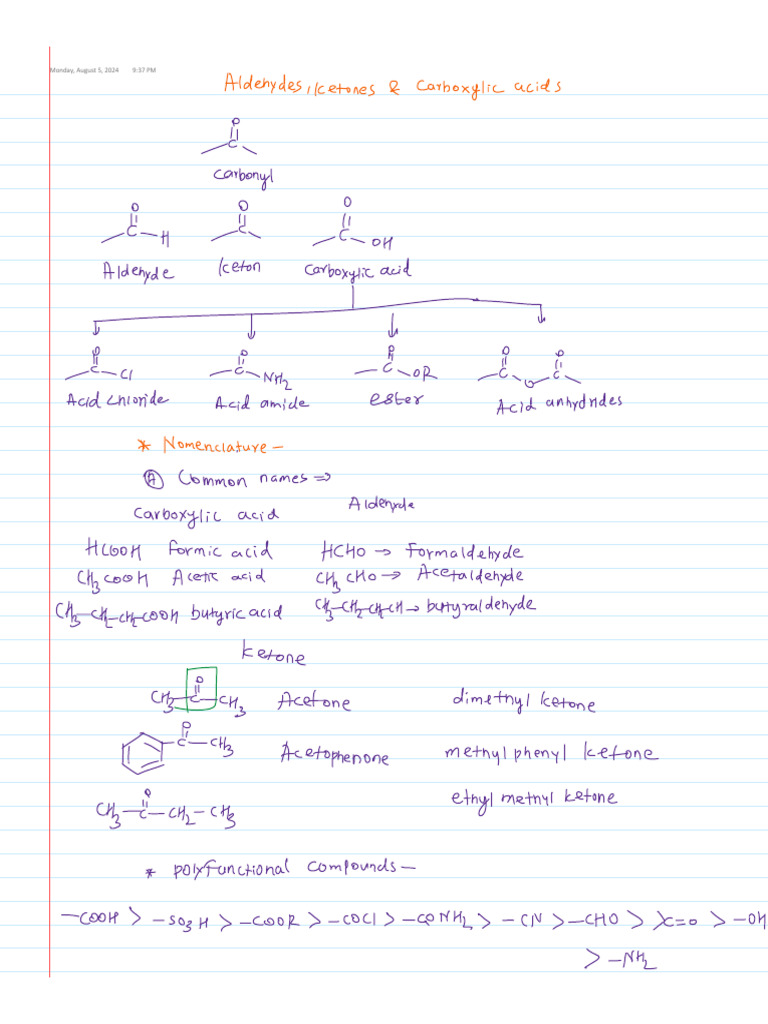 Monday, August 5, 2024 9:37 PM
Aldehydes, Ketones & Carboxylic acids
O
C
Carbonyl
O O O
C-H C C-OH
Aldehyde Keton Carboxylic acid
O O O O O
C-Cl C-NH2 -C-OR C O C
Acid chloride Acid amide ester Acid anhydrides
* Nomenclature -
(A) Common names ⇒
Carboxylic acid Aldehyde
HCOOH formic acid HCHO → Formaldehyde
CH3COOH Acetic acid CH3CHO → Acetaldehyde
CH3-CH2-CH2-COOH butyric acid CH3-CH2CH2CH → butyraldehyde
Ketone
O
CH3-C-CH3 Acetone dimethyl ketone
O
C-CH3 Acetophenone methyl phenyl ketone
O
CH3-C-CH2-CH3 ethyl methyl ketone
* polyfunctional compounds -
-COOH > -SO3H > -COOR > -COCl > -CONH2 > -CN > -CHO > >C=O > -OH
> -NH2